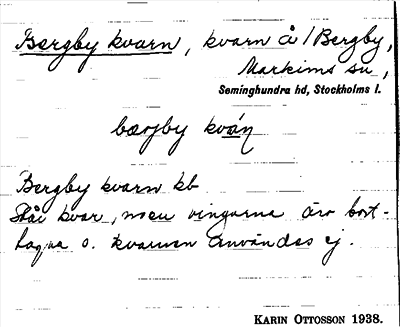 Bergby kvarn, kvarn å/Bergby,
Markims sn,
Seminghundra hd, Stockholms l.
bærjby kván
Bergby kvarn kb
Står kvar, men vingarna äro bort-
tagna o. kvarnen användes ej.
KARIN OTTOSSON 1938.